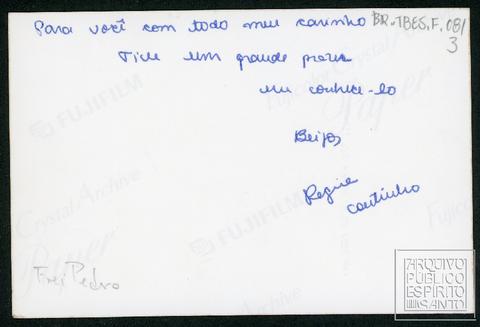 Para você com todo meu carinho
BR.TBES.F.081
3
Tive um grande prazer
em conhece-lo
Beijos
Regina
Coutinho
Frei Pedro
FUJIFILM
Fujicolor Crystal Archive
Paper
Crystal Archive
Paper
FUJIFILM
FUJIFILM
ARQUIVO
PÚBLICO
ESPÍRITO
SANTO